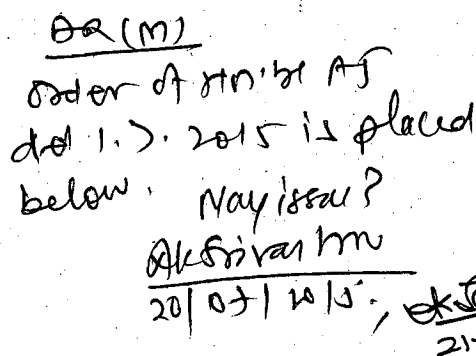 DR (M)
Order of Hon'ble AJ
dtd 1.7.2015 is placed
below. May issue?
AkSrivastava
20/07/2015.,
21.